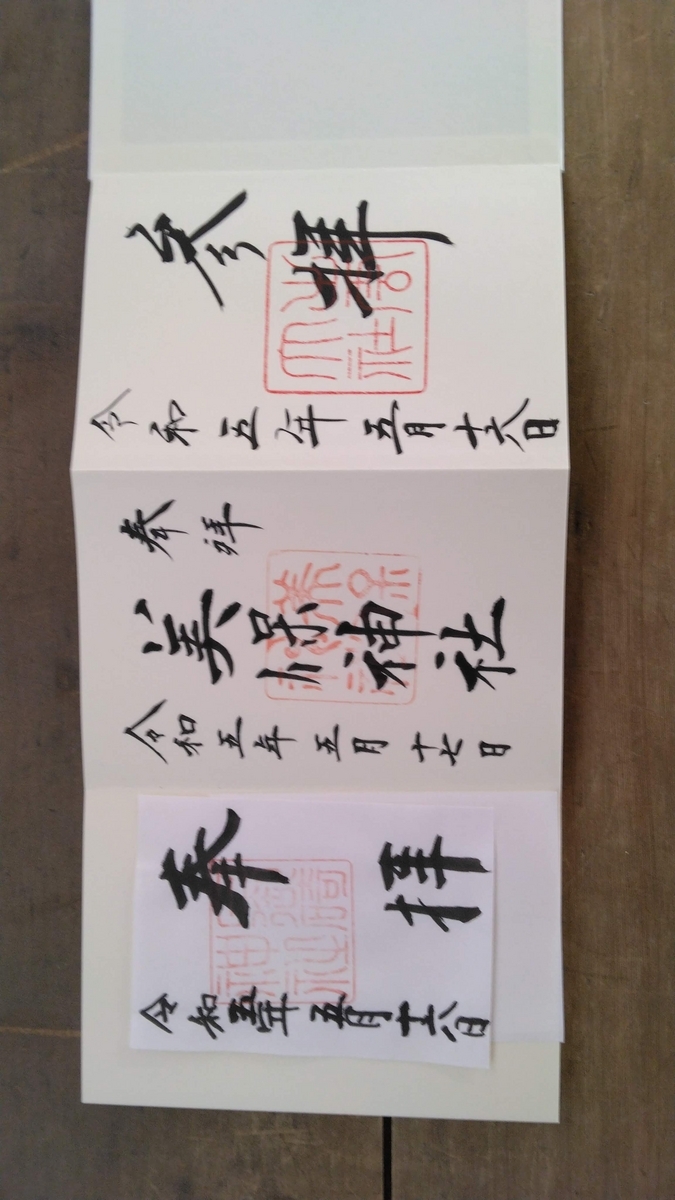 参拝
令和五年五月十六日
奉拝
美保神社
令和五年五月十七日
奉拝
令和五年五月十八日